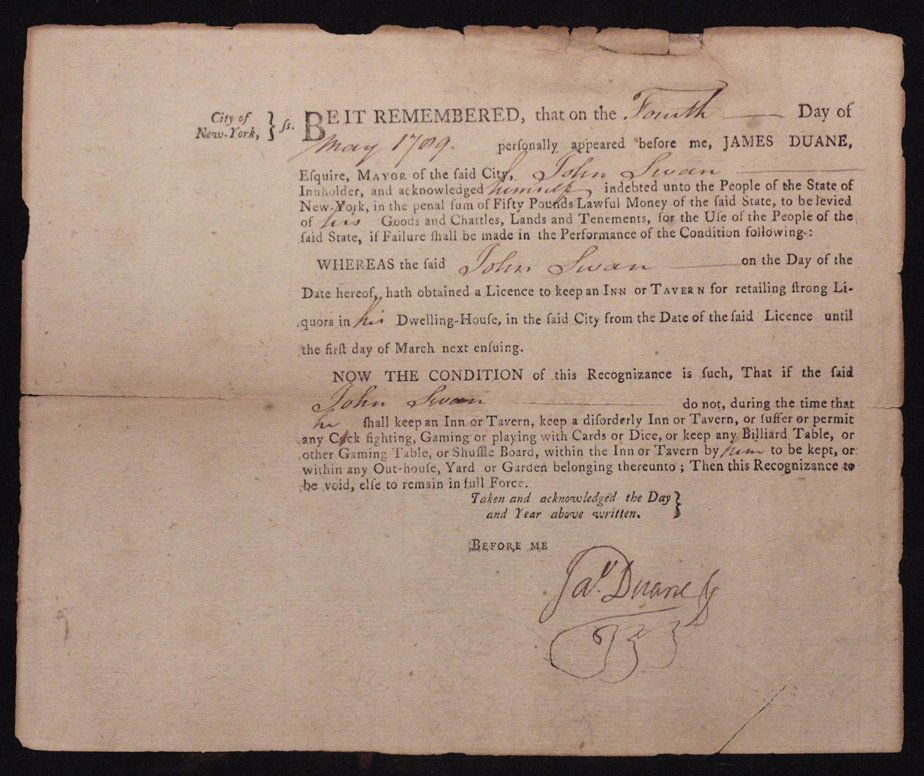 City of
New-York, } ſs.
BE IT REMEMBERED, that on the Fourth Day of
May 1789. personally appeared before me, JAMES DUANE,
Esquire, MAYOR of the said City, John Swan
Innholder, and acknowledged himself indebted unto the People of the State of
New-York, in the penal ſum of Fifty Pounds Lawful Money of the said State, to be levied
of his Goods and Chattles, Lands and Tenements, for the Uſe of the People of the
ſaid State, if Failure ſhall be made in the Performance of the Condition following:
WHEREAS the ſaid John Swan on the Day of the
Date hereof, hath obtained a Licence to keep an INN or TAVERN for retailing ſtrong Li-
quors in his Dwelling-Houſe, in the ſaid City from the Date of the ſaid Licence until
the firſt day of March next enſuing.
NOW THE CONDITION of this Recognizance is ſuch, That if the ſaid
John Swan do not, during the time that
he ſhall keep an Inn or Tavern, keep a diſorderly Inn or Tavern, or ſuffer or permit
any Cock fighting, Gaming or playing with Cards or Dice, or keep any Billiard Table, or
other Gaming Table, or Shuffle Board, within the Inn or Tavern by him to be kept, or
within any Out-houſe, Yard or Garden belonging thereunto; Then this Recognizance to
be void, elſe to remain in full Force.
Taken and acknowledged the Day }
and Year above written.
BEFORE ME
Jaˢ. Duane